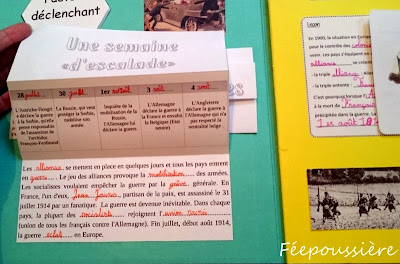 déclenchant
Une semaine
«d'escalade»
28 juillet
30 juillet
1er août
3 août
4 août
L'Autriche-Hongrie
déclare la guerre
à la Serbie,
qu'elle pense
responsable
de l'assassinat de
l'archiduc
François-Ferdinand
La Russie, qui veut
protéger la Serbie,
mobilise son
armée.
Inquiète de la
mobilisation de la
Russie,
l'Allemagne lui
déclare la guerre.
L'Allemagne
déclare la guerre à
la France et envahit
la Belgique (Etat
neutre)
L'Angleterre
déclare la guerre à
l'Allemagne qui n'a
pas respecté la
neutralité belge
Les alliances se mettent en place en quelques jours et tous les pays entrent
en guerre. Le jeu des alliances provoque la mobilisation des armées.
Les socialistes voulaient empêcher la guerre par la grève générale. En
France, l'un d'eux, Jean Jaurès, partisan de la paix, est assassiné le 31
juillet 1914 par un fanatique. La guerre est devenue inévitable. Dans chaque
pays, la plupart des socialistes rejoignent l'union sacrée
(fusion de tous les français contre l'Allemagne). Fin juillet, début août 1914,
la guerre éclate en Europe.
Leçon
En 1900, la situation en Europe
pour le contrôle des colonies
vers. Les pays d'Europe
alliances
- la triple
- la triple
C'est pourquoi lorsque
à la mort de François
1er août 19
Féepoussière